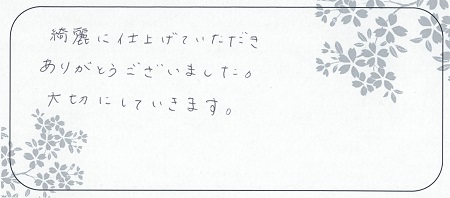 綺麗に仕上げていただき
ありがとうございました。
大切にしていきます。